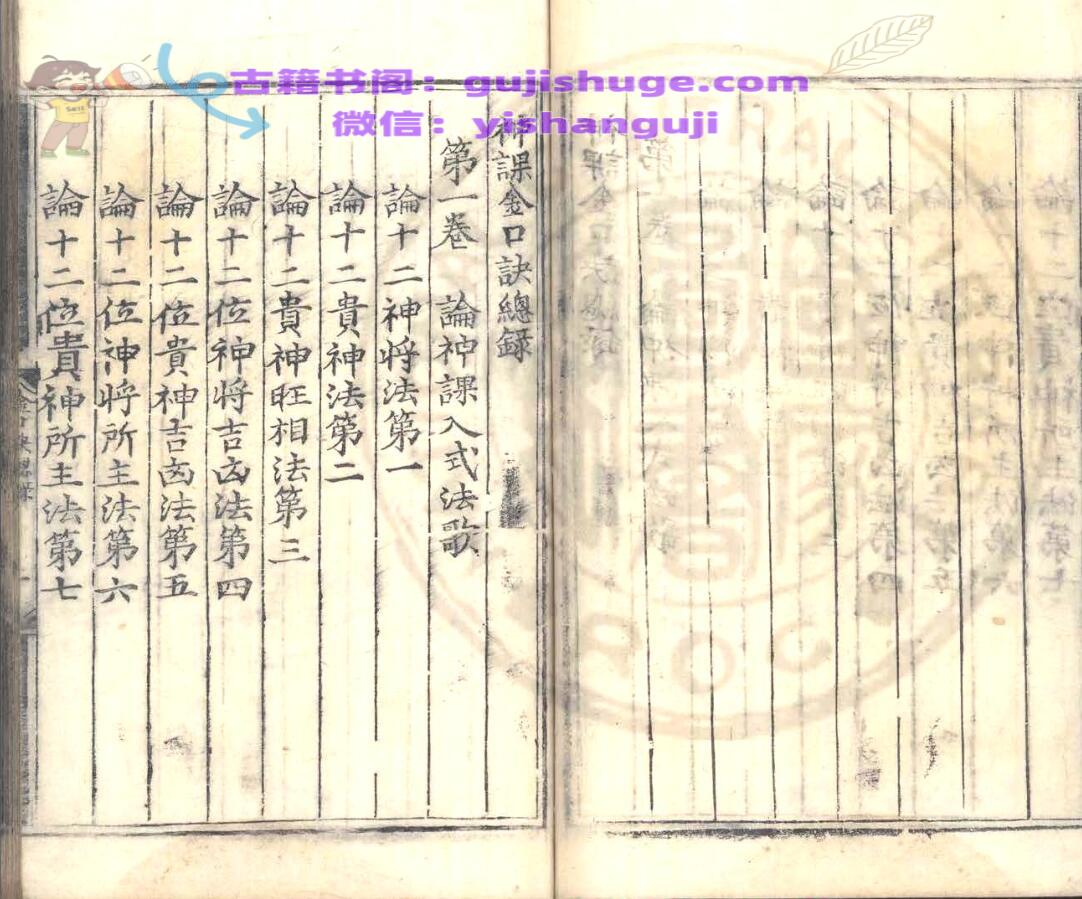 古籍书阁：gujishuge.com
微信：yishanguji
神課金口訣總録
第一卷　論神課入式法歌
論十二神將法第一
論十二貴神法第二
論十二貴神旺相法第三
論十二位神將吉凶法第四
論十二位貴神吉凶法第五
論十二位神將所主法第六
論十二位貴神所主法第七